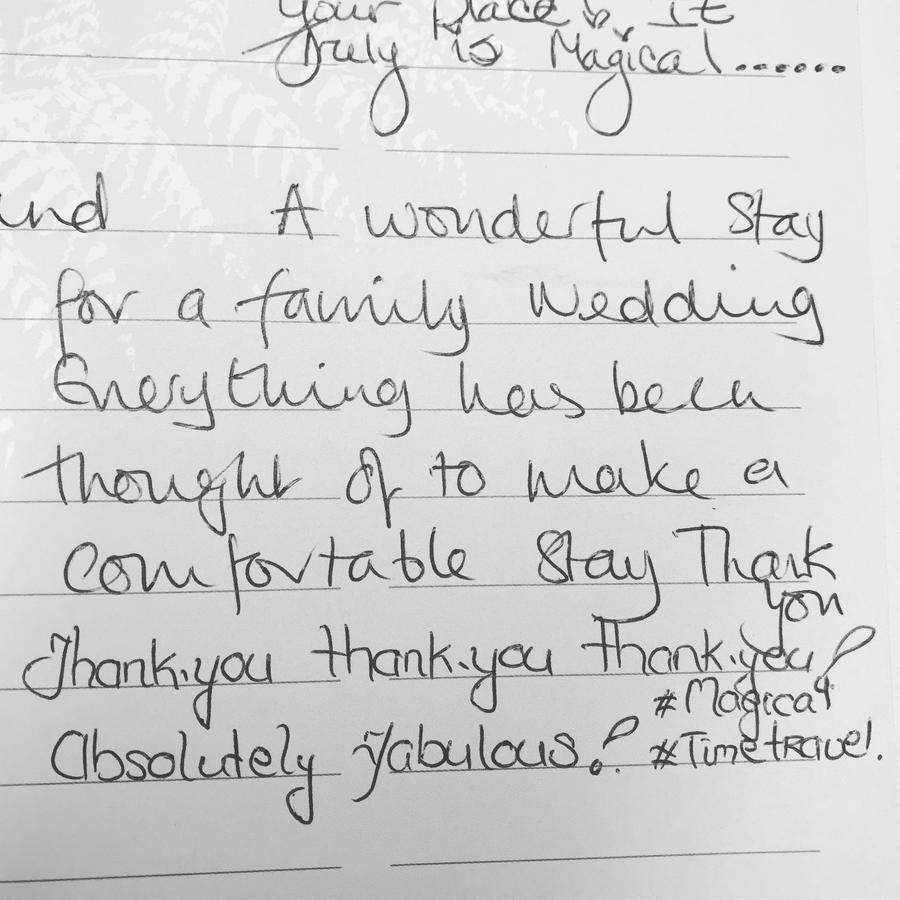 Your Place & It
Truly is Magical.......
A wonderful Stay
for a family Wedding
Everything has been
thought of to make a
Comfortable Stay Thank
you
Thank.you thank.you thank.you!
#Magical
Absolutely fabulous! #Timetravel.